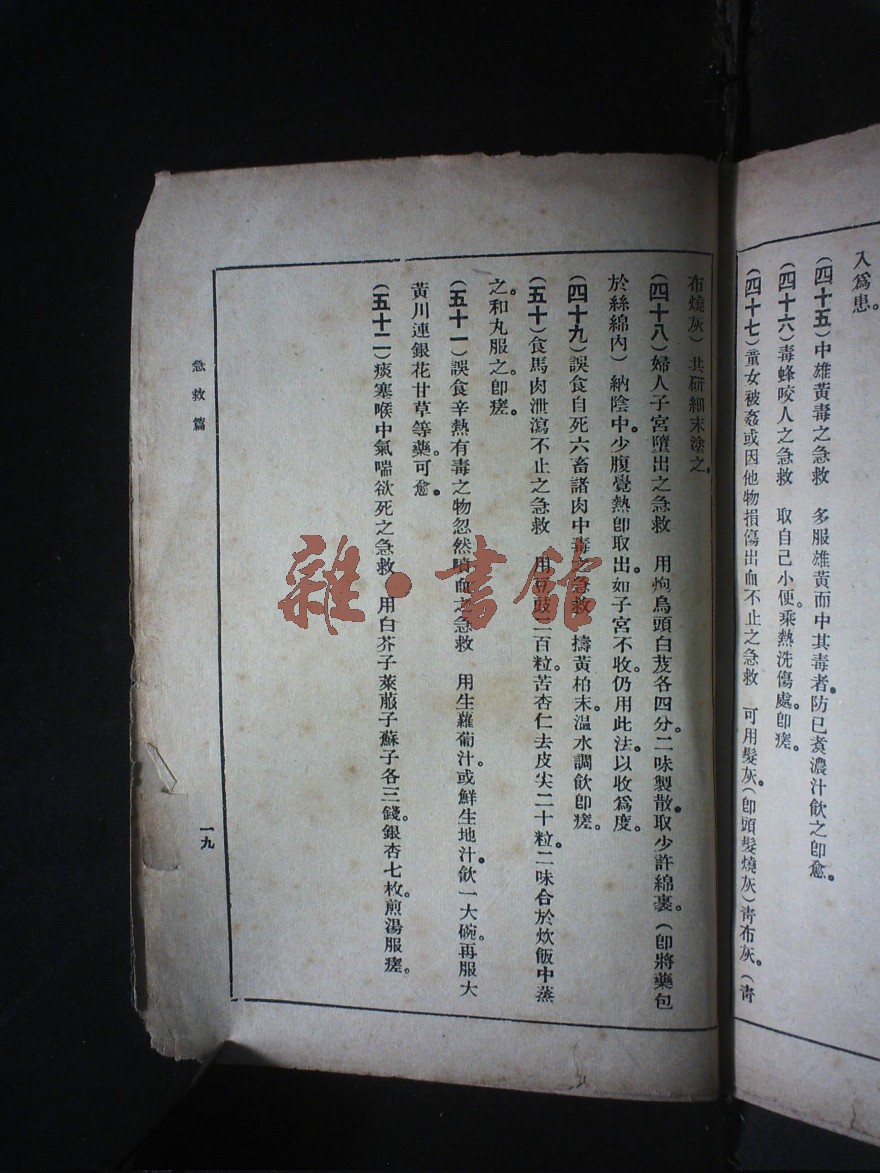 入爲患。
（四十五）中雄黃毒之急救　多服雄黃而中其毒者。防已煮濃汁飮之卽愈。
（四十六）毒蜂咬人之急救　取自己小便。乘熱洗傷處。卽瘥。
（四十七）童女被姦或因他物損傷出血不止之急救　可用髮灰。（卽頭髮燒灰）靑布灰。（靑
布燒灰）共研細末塗之。
（四十八）婦人子宮墮出之急救　用炮烏頭白芨各四分。二味製散。取少許綿裹。（卽將藥包
於絲綿內）納陰中。少腹覺熱卽取出。如子宮不收。仍用此法。以收爲度。
（四十九）誤食自死六畜諸肉中毒之急救　擣黃柏末。溫水調飮卽瘥。
（五十）食馬肉泄瀉不止之急救　用豆豉二百粒。苦杏仁去皮尖二十粒。二味合於炊飯中蒸
之。和丸服之。卽瘥。
（五十一）誤食辛熱有毒之物忽然噴血之急救　用生蘿蔔汁。或鮮生地汁。飮一大碗。再服大
黃川連銀花甘草等藥。可愈。
（五十二）痰塞喉中氣喘欲死之急救　用白芥子萊菔子蘇子各三錢。銀杏七枚。煎湯服。瘥。
急救篇
一九
雜·書館